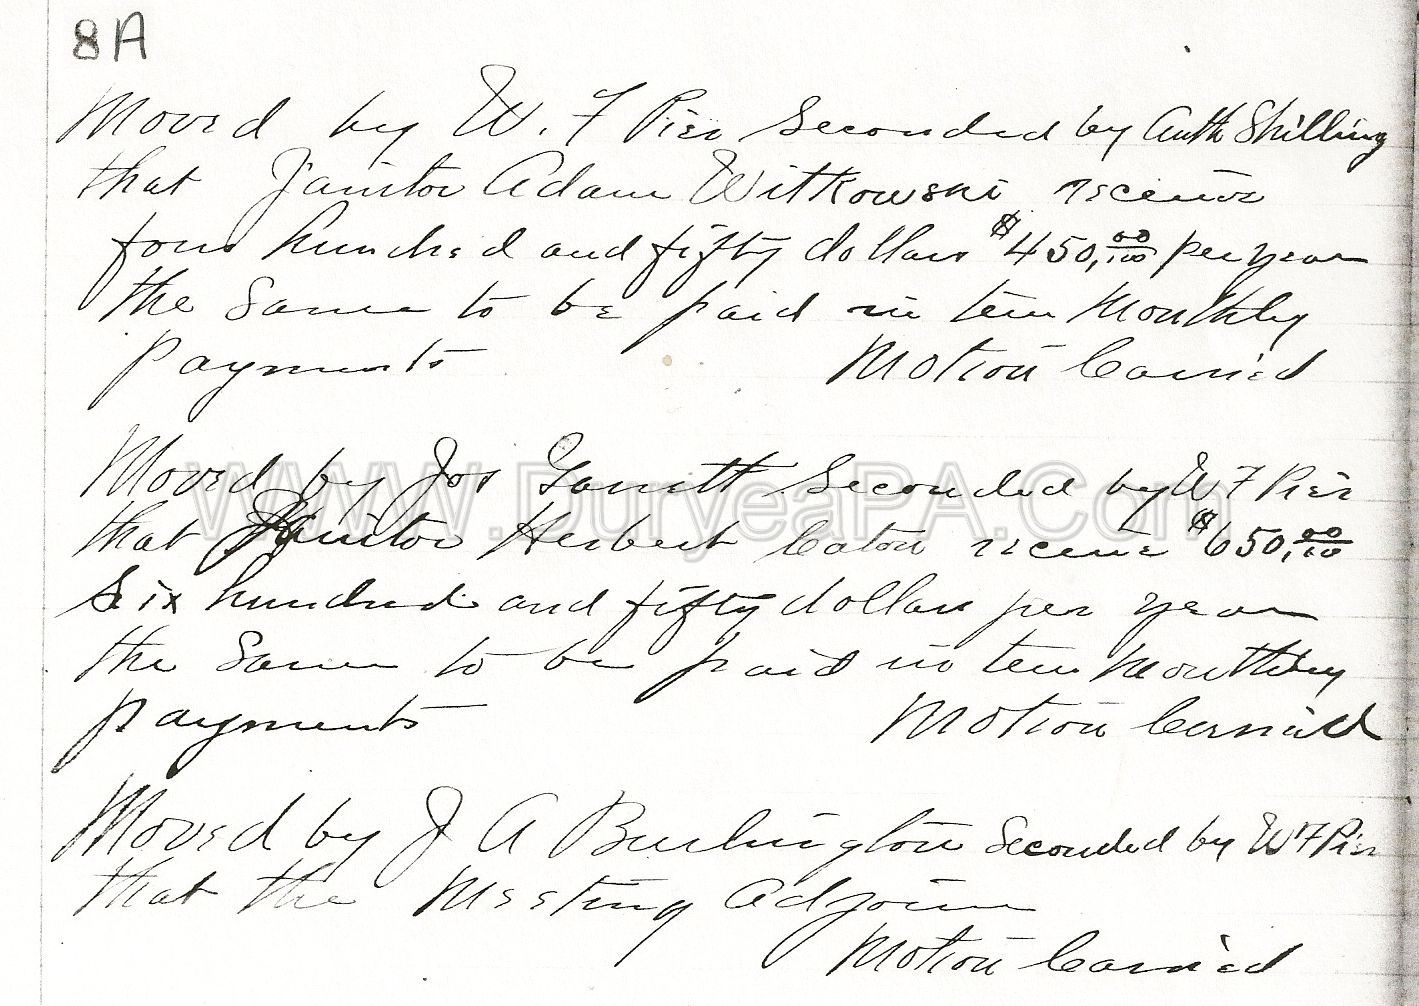 8A
Moved by W. F Pier Seconded by Auth Shilling
that Janitor Adam Witkowski receive
four hundred and fifty dollars $450,00/100 per year
the same to be paid in ten Monthly
payments Motion Carried
Moved by Jos Garrett Seconded by W F Pier
that Janitor Herbert Eaton receive $650,00/100
Six hundred and fifty dollars per year
the same to be paid in ten Monthly
payments Motion Carried
Moved by J A Burlington Seconded by W F Pier
that the Meeting adjourn
Motion Carried
WWW.DuryeaPA.Com